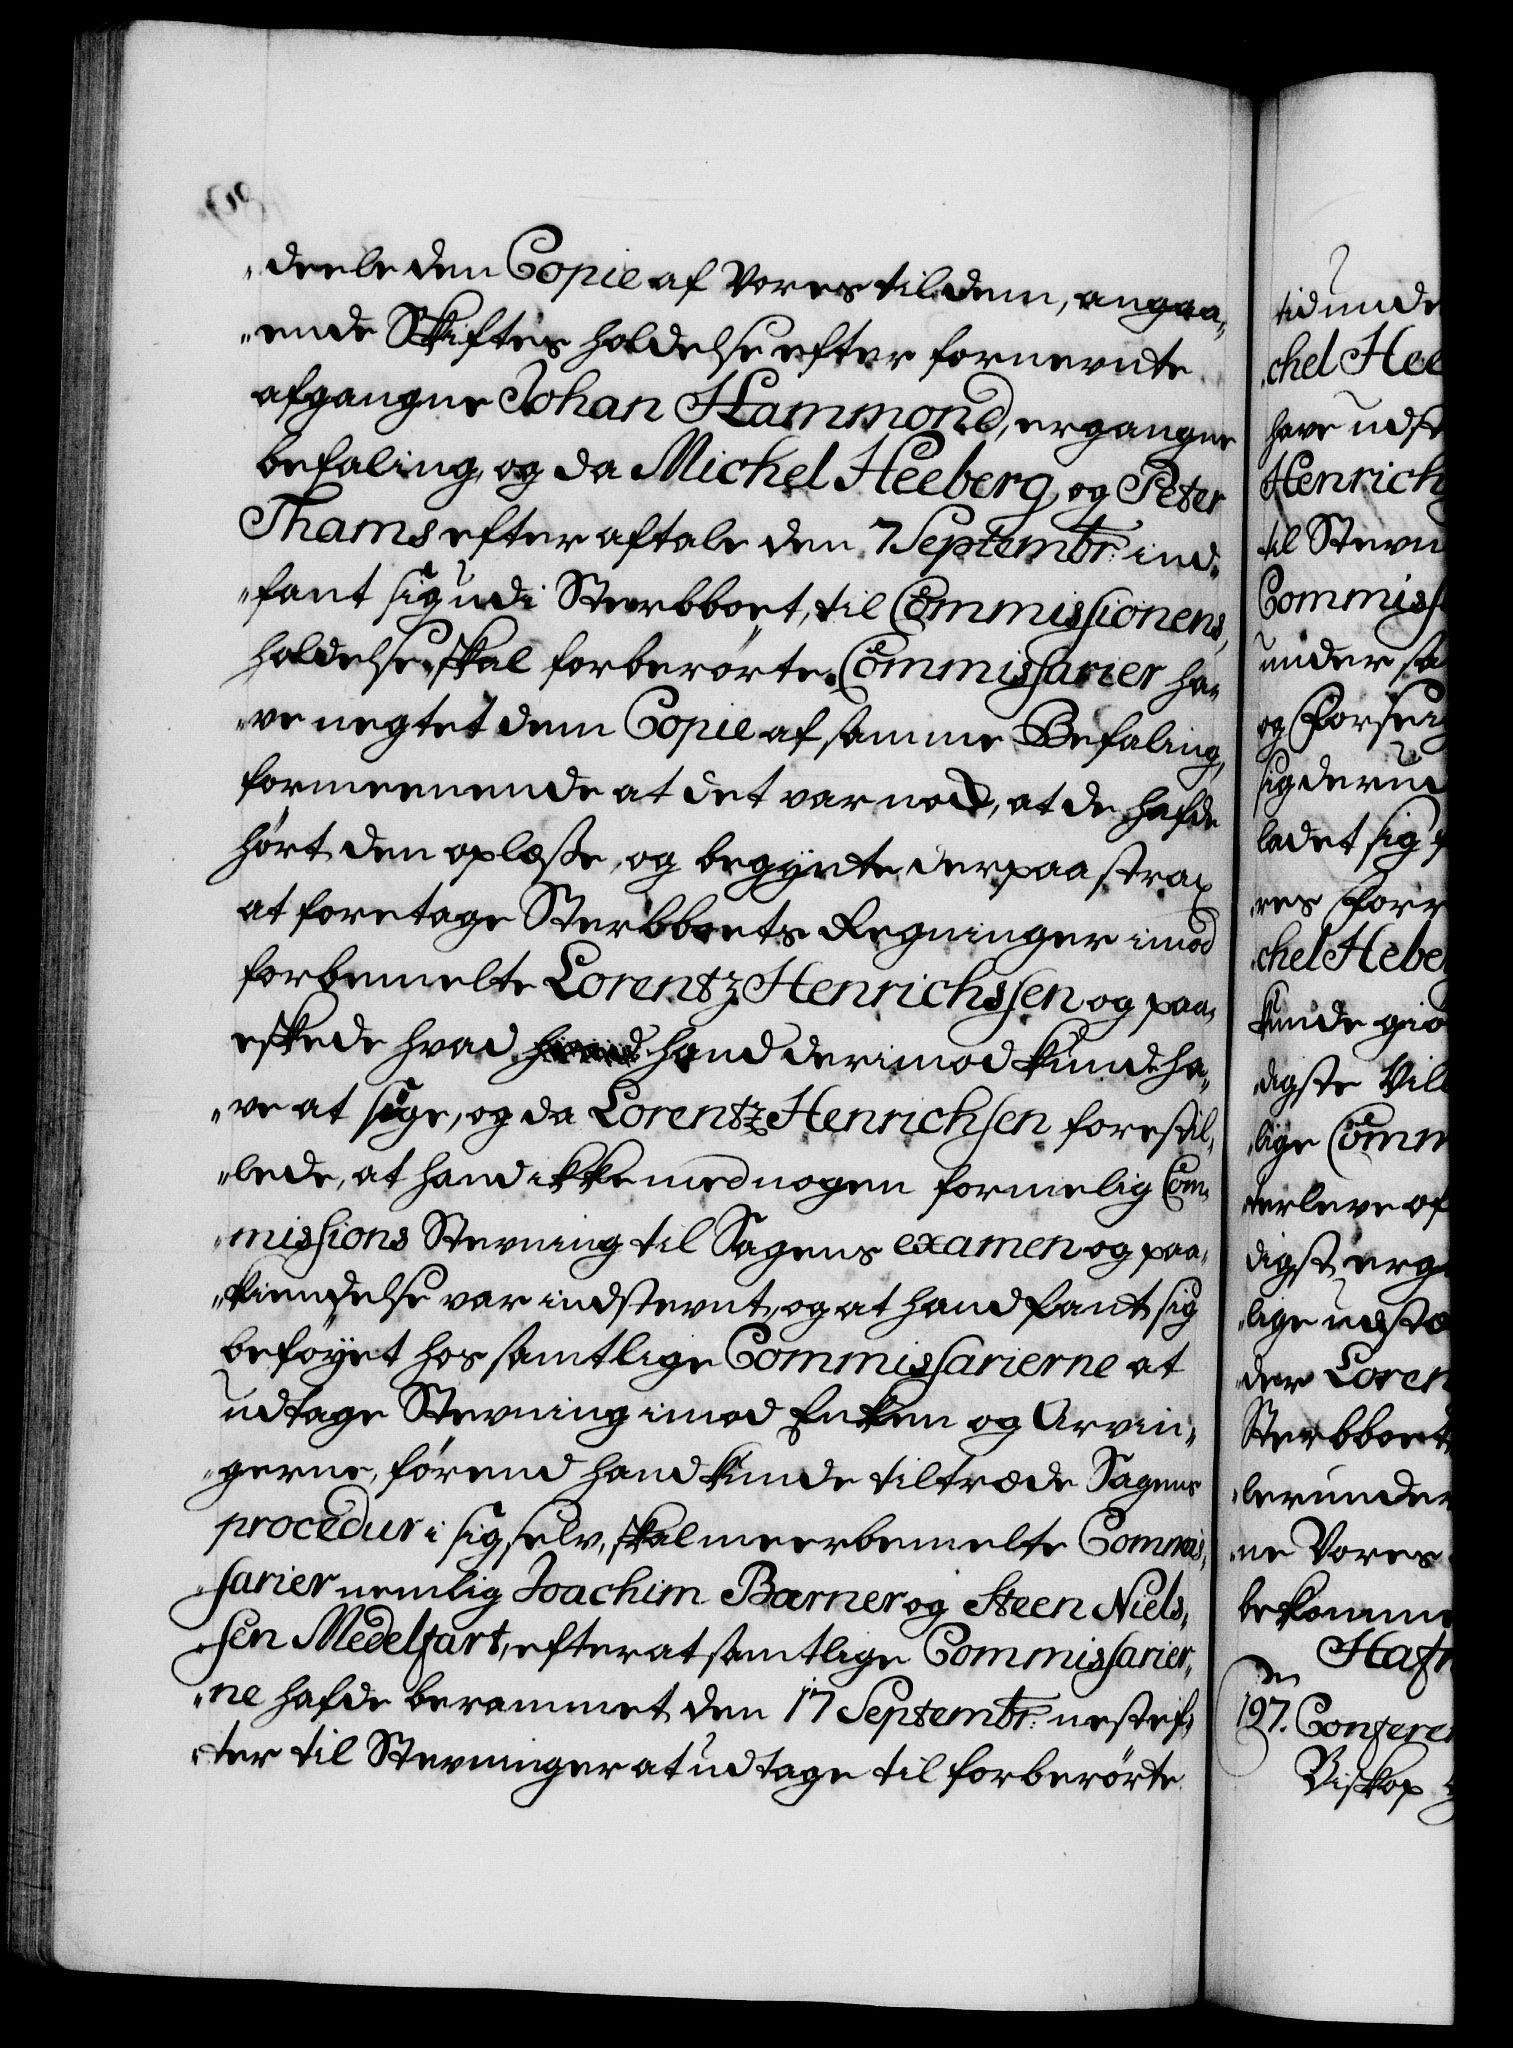 „deele den Copie af Vores til dem, angaa„
„ende Skiftes holdelse efter fornevnte
afgangne Johan Hammond, ergangne
befaling, og da Michel Heeberg og Peter
Thams efter aftale den 7 Septembr. ind„
„fant sig udi Sterbboet, til Commissionens,
holdelse, skal forberørte Commissarier ha„
„ve negtet dem Copie af samme Befaling,
formeenende at det var nod, at de hafde
hørt den oplæsse, og begynte derpaa strax
at foretage Sterbboets Regninger imod
forbemelte Lorentz Henrichssen og paa„
eskede hvad hand derimod kunde ha„
„ve at sige, og da Lorentz Henrichsen forestil„
„lede, at hand ikke med nogen formelig Com„
„missions Stevning til Sagens examen og paa„
„kiendelse var indstevnt, og at hand fant sig
beføyet hos samtlige Commissarierne at
udtage Stevning imod Enken og Arvin„
„gerne, førend hand kunde tiltræde Sagens
procedur i sig selv, skal meerbemelte Commis„
„sarier nemlig Joachim Barner og Steen Niels„
„sen Medelfart, efter at samtlige Commissarier„
„ne hafde berammet den 17 Septembr. nestef„
„ter til Stevninger at udtage til forberørte
tid unde
chel Hee
have udst
Henrich
til Stevn
Commiss
under sa
og Forseig
sig derud
ladet sig
res Forr
chel Hebe
kunde giø
digste Vill
lige Comm
terleve of
digst erg
lige udstæ
der Loren
Sterbboet
lerunder
ne Vores
bekomme
Hafn
197. Conferen
Biskop